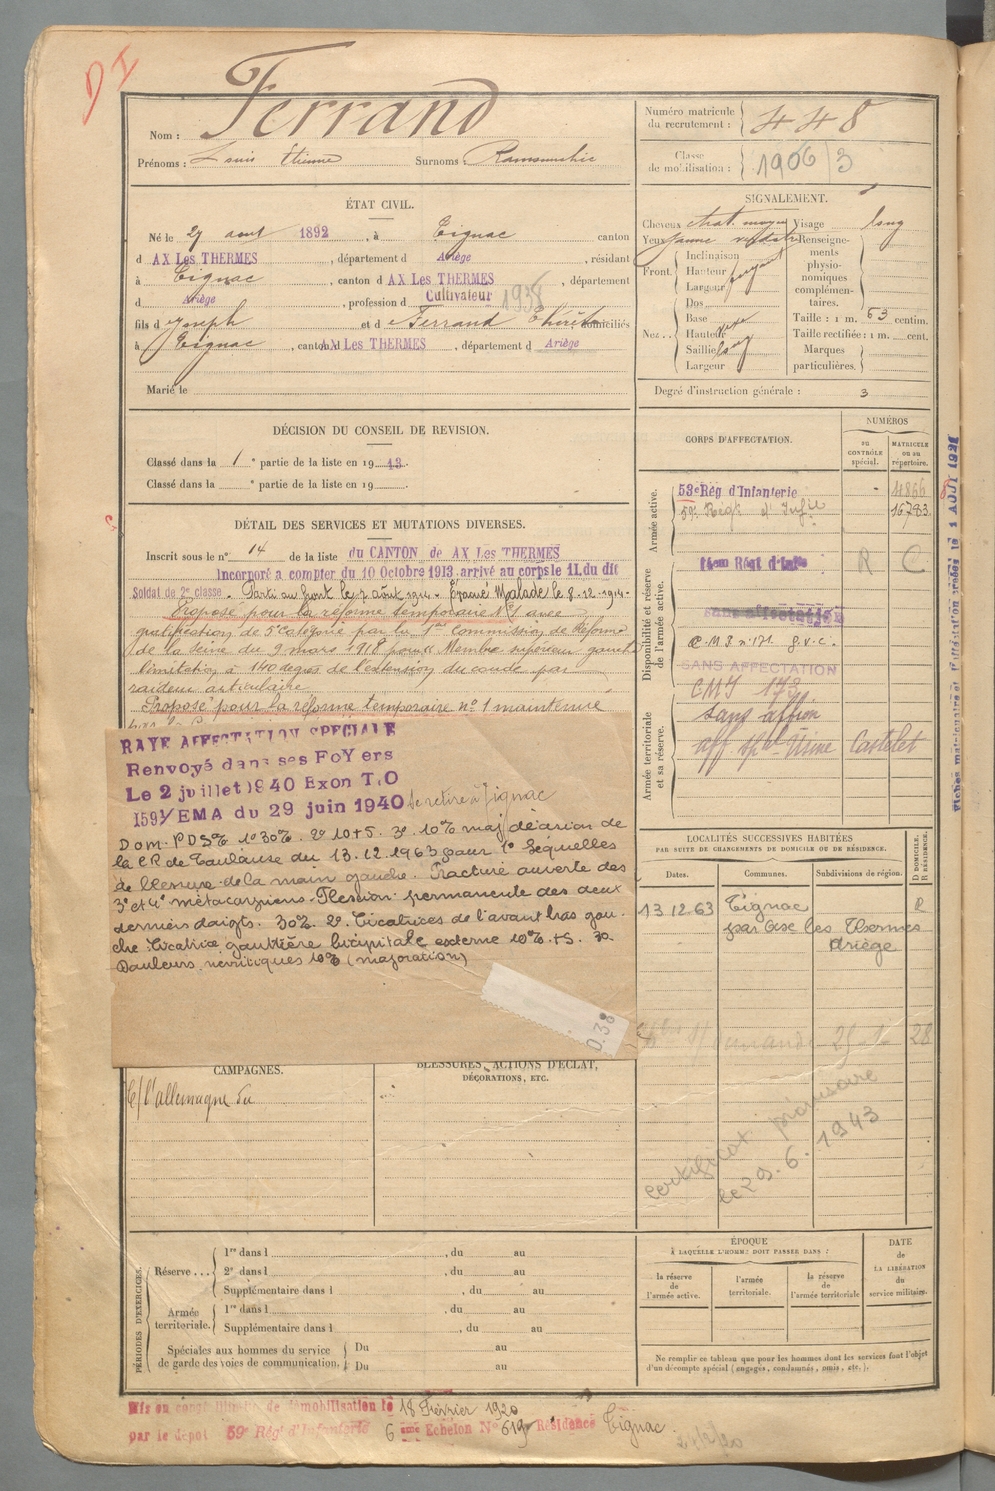 D I
Nom : Ferrand
Prénoms : Louis Etienne Surnoms :
Numéro matricule du recrutement : 448
Classe de mobilisation : 1906/3
ÉTAT CIVIL.
Né le 27 aout 1892, à Tignac canton
d AX Les THERMES, département d Ariège, résidant
à Tignac, canton d AX Les THERMES, département
d Ariège, profession d Cultivateur 1938
fils d Joseph et d Ferrand domiciliés
à Tignac, canton d AX Les THERMES, département d Ariège
Marié le
SIGNALEMENT.
Cheveux chat. moyen Visage long
Yeux jaune verdatre Renseignements physionomiques complémentaires.
Front. Inclinaison
Hauteur
Largeur
Nez... Dos
Base
Hauteur
Saillie
Largeur
Taille : 1 m. 63 centim.
Taille rectifiée : 1 m. cent.
Marques particulières.
Degré d'instruction générale : 3
DÉCISION DU CONSEIL DE REVISION.
Classé dans la 1e partie de la liste en 1913.
Classé dans la e partie de la liste en 19
DÉTAIL DES SERVICES ET MUTATIONS DIVERSES.
Inscrit sous le n° 14 de la liste du CANTON de AX Les THERMES
Incorporé a compter du 10 Octobre 1913 arrivé au corps le 11 du dit
Soldat de 2e classe. Parti au front le 7 août 1914. Evacué Malade le 8-12-1914.
Proposé pour la réforme temporaire N°1 avec
gratification de 5e catégorie par la 1ère Commission de Réforme
de la Seine du 9 mars 1918 pour Membre supérieur gauche
limitation à 140 degrés de l'extension du coude par
raideur articulaire
Proposé pour la réforme temporaire n° 1 maintenue
RAYE AFFECTATION SPECIALE
Renvoyé dans ses FoYers
Le 2 juillet 1940 Exon T.O
1591/EMA du 29 juin 1940 Se retire à Tignac
Dom. PDS% 1° 30%. 2° 10+5. 3° 10% maj décision de
la CR de Toulouse du 13.12.1963 pour 1° Séquelles
de blessure de la main gauche. Fracture ouverte des
3e et 4e métacarpiens. Flexion permanente des deux
derniers doigts. 30%. 2° Cicatrices de l'avant bras gau-
che. Cicatrice gouttière bicipitale externe 10% +5. 3°
Douleurs névritiques 10% (majoration)
D.38
CORPS D'AFFECTATION.
NUMÉROS
au contrôle spécial.
MATRICULE ou au répertoire.
Armée active.
53e Rég d'Infanterie - 4866
59e Régt d'Infie 16783
Disponibilité et réserve de l'armée active.
R C
sans affectation
C.M.J n°171. g.v.c.
SANS AFFECTATION
CMJ 173
Armée territoriale et sa réserve.
Sans affton
aff. sple Usine Castelet
LOCALITÉS SUCCESSIVES HABITÉES
PAR SUITE DE CHANGEMENTS DE DOMICILE OU DE RÉSIDENCE.
Dates. Communes. Subdivisions de région. D DOMICILE. R RÉSIDENCE.
13 12.63 Tignac R
par Axe les Thermes
Ariège
28
certificat provisoire
le 29.6.1943
CAMPAGNES.
C/ l'allemagne du
BLESSURES, ACTIONS D'ÉCLAT,
DÉCORATIONS, ETC.
PÉRIODES D'EXERCICES.
Réserve... 1re dans l , du au
2e dans l , du au
Supplémentaire dans l , du au
Armée territoriale. 1re dans l , du au
Supplémentaire dans l , du au
Spéciales aux hommes du service de garde des voies de communication. Du au
Du au
ÉPOQUE
À LAQUELLE L'HOMME DOIT PASSER DANS :
la réserve de l'armée active.
l'armée territoriale.
la réserve de l'armée territoriale
DATE de LA LIBÉRATION du service militaire.
Ne remplir ce tableau que pour les hommes dont les services font l'objet
d'un décompte spécial (engagés, condamnés, omis, etc.).
Mis en congé illimité de démobilisation le 18 Février 1920
par le dépot 59e Régt d'Infanterie 6 ème Echelon N° 619 Résidence Tignac